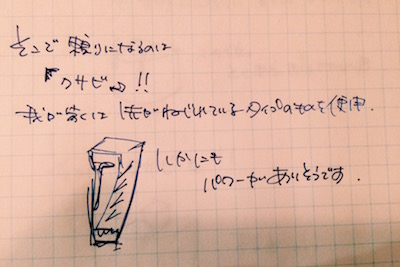 そこで頼りになるのは
「クサビ」!!
我が家では先がねじれているタイプのものを使用.
いかにも
パワーがありそうです.